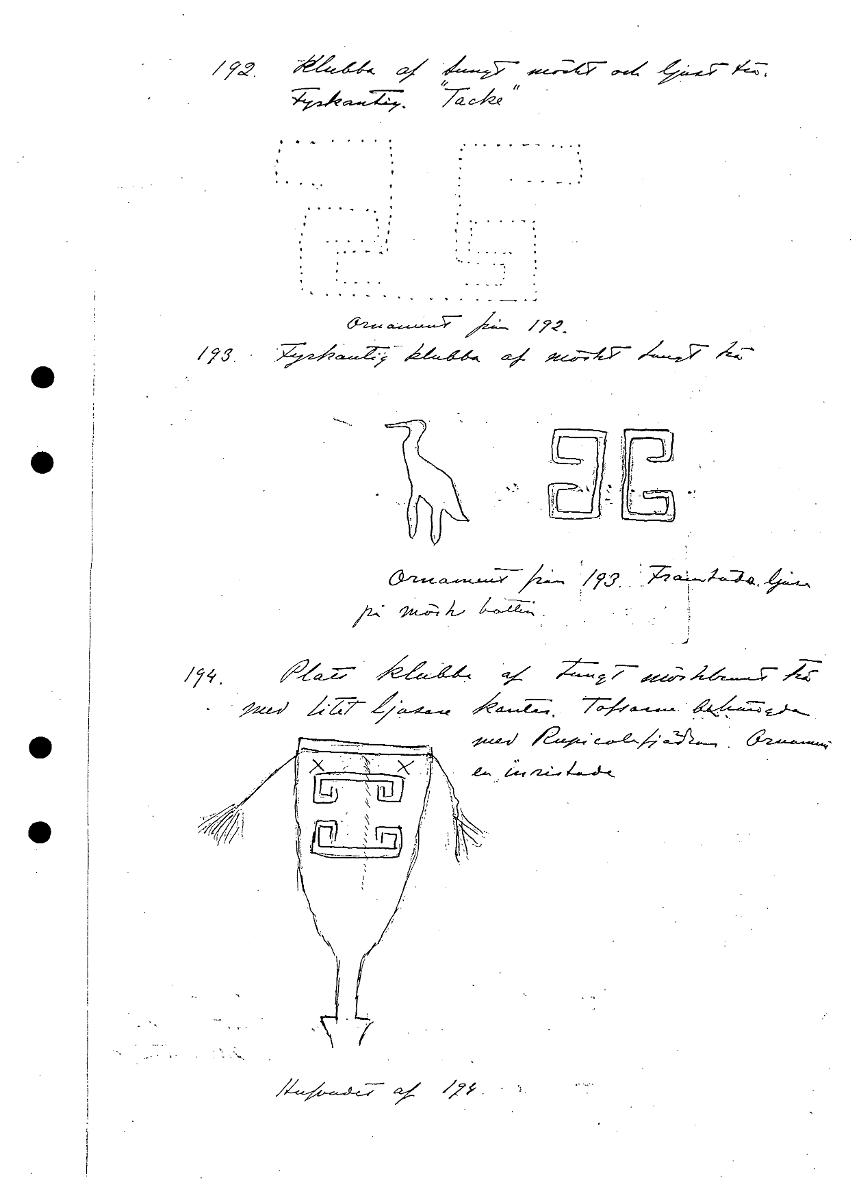 192. Klubba af tungt mörkt och ljust trä.
Fyrkantig. "Tacke"
Ornament från 192.
193. Fyrkantig klubba af mörkt tungt trä
Ornament från 193. Framträda ljusa
på mörk botten.
194. Platt klubba af tungt mörkbrunt trä
med litet ljusare kanter. Tofsarne behängda
med Rupicolafjädrar. Ornamen
en inristade
Hufvudet af 194.